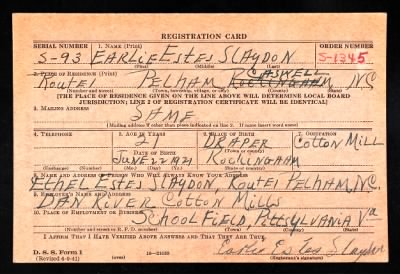 REGISTRATION CARD
SERIAL NUMBER 1. NAME (Print) ORDER NUMBER
S-93 EARLIE ESTES SLAYDON S-1345
(First) (Middle) (Last)
2. PLACE OF RESIDENCE (Print)
CASWELL
Route 1 PELHAM ROCKINGHAM NC
(Number and street) (Town, township, village, or city) (County) (State)
[THE PLACE OF RESIDENCE GIVEN ON THE LINE ABOVE WILL DETERMINE LOCAL BOARD
JURISDICTION; LINE 2 OF REGISTRATION CERTIFICATE WILL BE IDENTICAL]
3. MAILING ADDRESS
SAME
[Mailing address if other than place indicated on line 2. If same insert word same]
4. TELEPHONE 5. AGE IN YEARS 6. PLACE OF BIRTH 7. OCCUPATION
21 DRAPER Cotton Mill
DATE OF BIRTH (Town or county)
JUNE 22 1921 ROCKINGHAM
(Exchange) (Number) (Mo.) (Day) (Yr.) (State or country)
8. NAME AND ADDRESS OF PERSON WHO WILL ALWAYS KNOW YOUR ADDRESS
ETHEL ESTES SLAYDON, Route 1 PELHAM, NC.
9. EMPLOYER'S NAME AND ADDRESS
DAN RIVER COTTON MILLS
10. PLACE OF EMPLOYMENT OR BUSINESS
SCHOOL FIELD, PITTSYLVANIA Va
(Number and street or R. F. D. number) (Town) (County) (State)
I AFFIRM THAT I HAVE VERIFIED ABOVE ANSWERS AND THAT THEY ARE TRUE.
D. S. S. Form 1 Earlie Estes Slaydon
(Revised 6-9-41) (Registrant's signature)